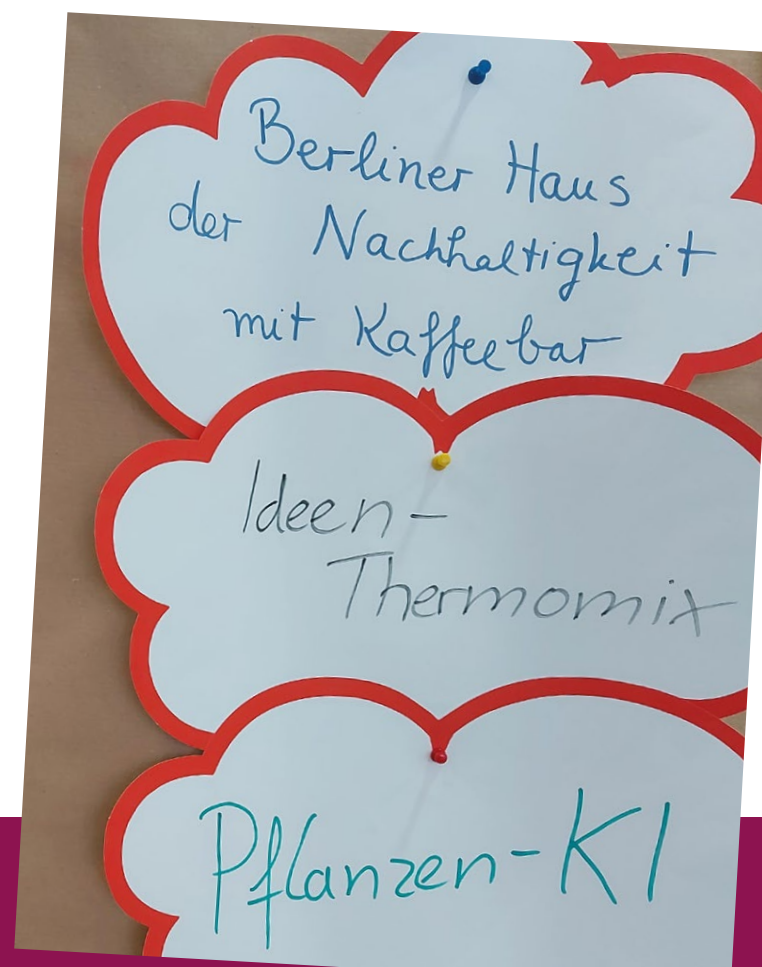 Berliner Haus
der Nachhaltigkeit
mit Kaffeebar
Ideen-
Thermomix
Pflanzen-KI